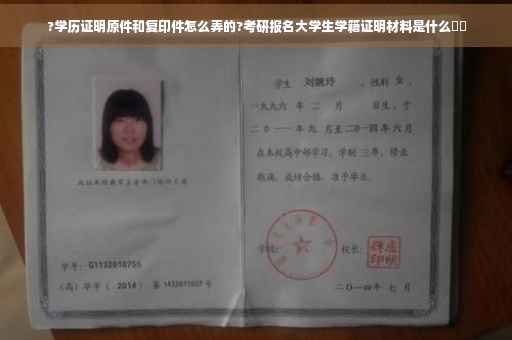 ?学历证明原件和复印件怎么弄的?考研报名大学生学籍证明材料是什么
学生 刘婉玲 ，性别 女 ，
一九九六 年 二 月 日生，于
二〇一一 年 九 月至 二〇一四 年 六 月
在本校高中部学习，学制 三 年，修业
期满，成绩合格，准予毕业。
学号: G1132010755
(高) 毕字 ( 2014 ) 第 1432011027 号
学校:
校长:
二〇一四年 七 月